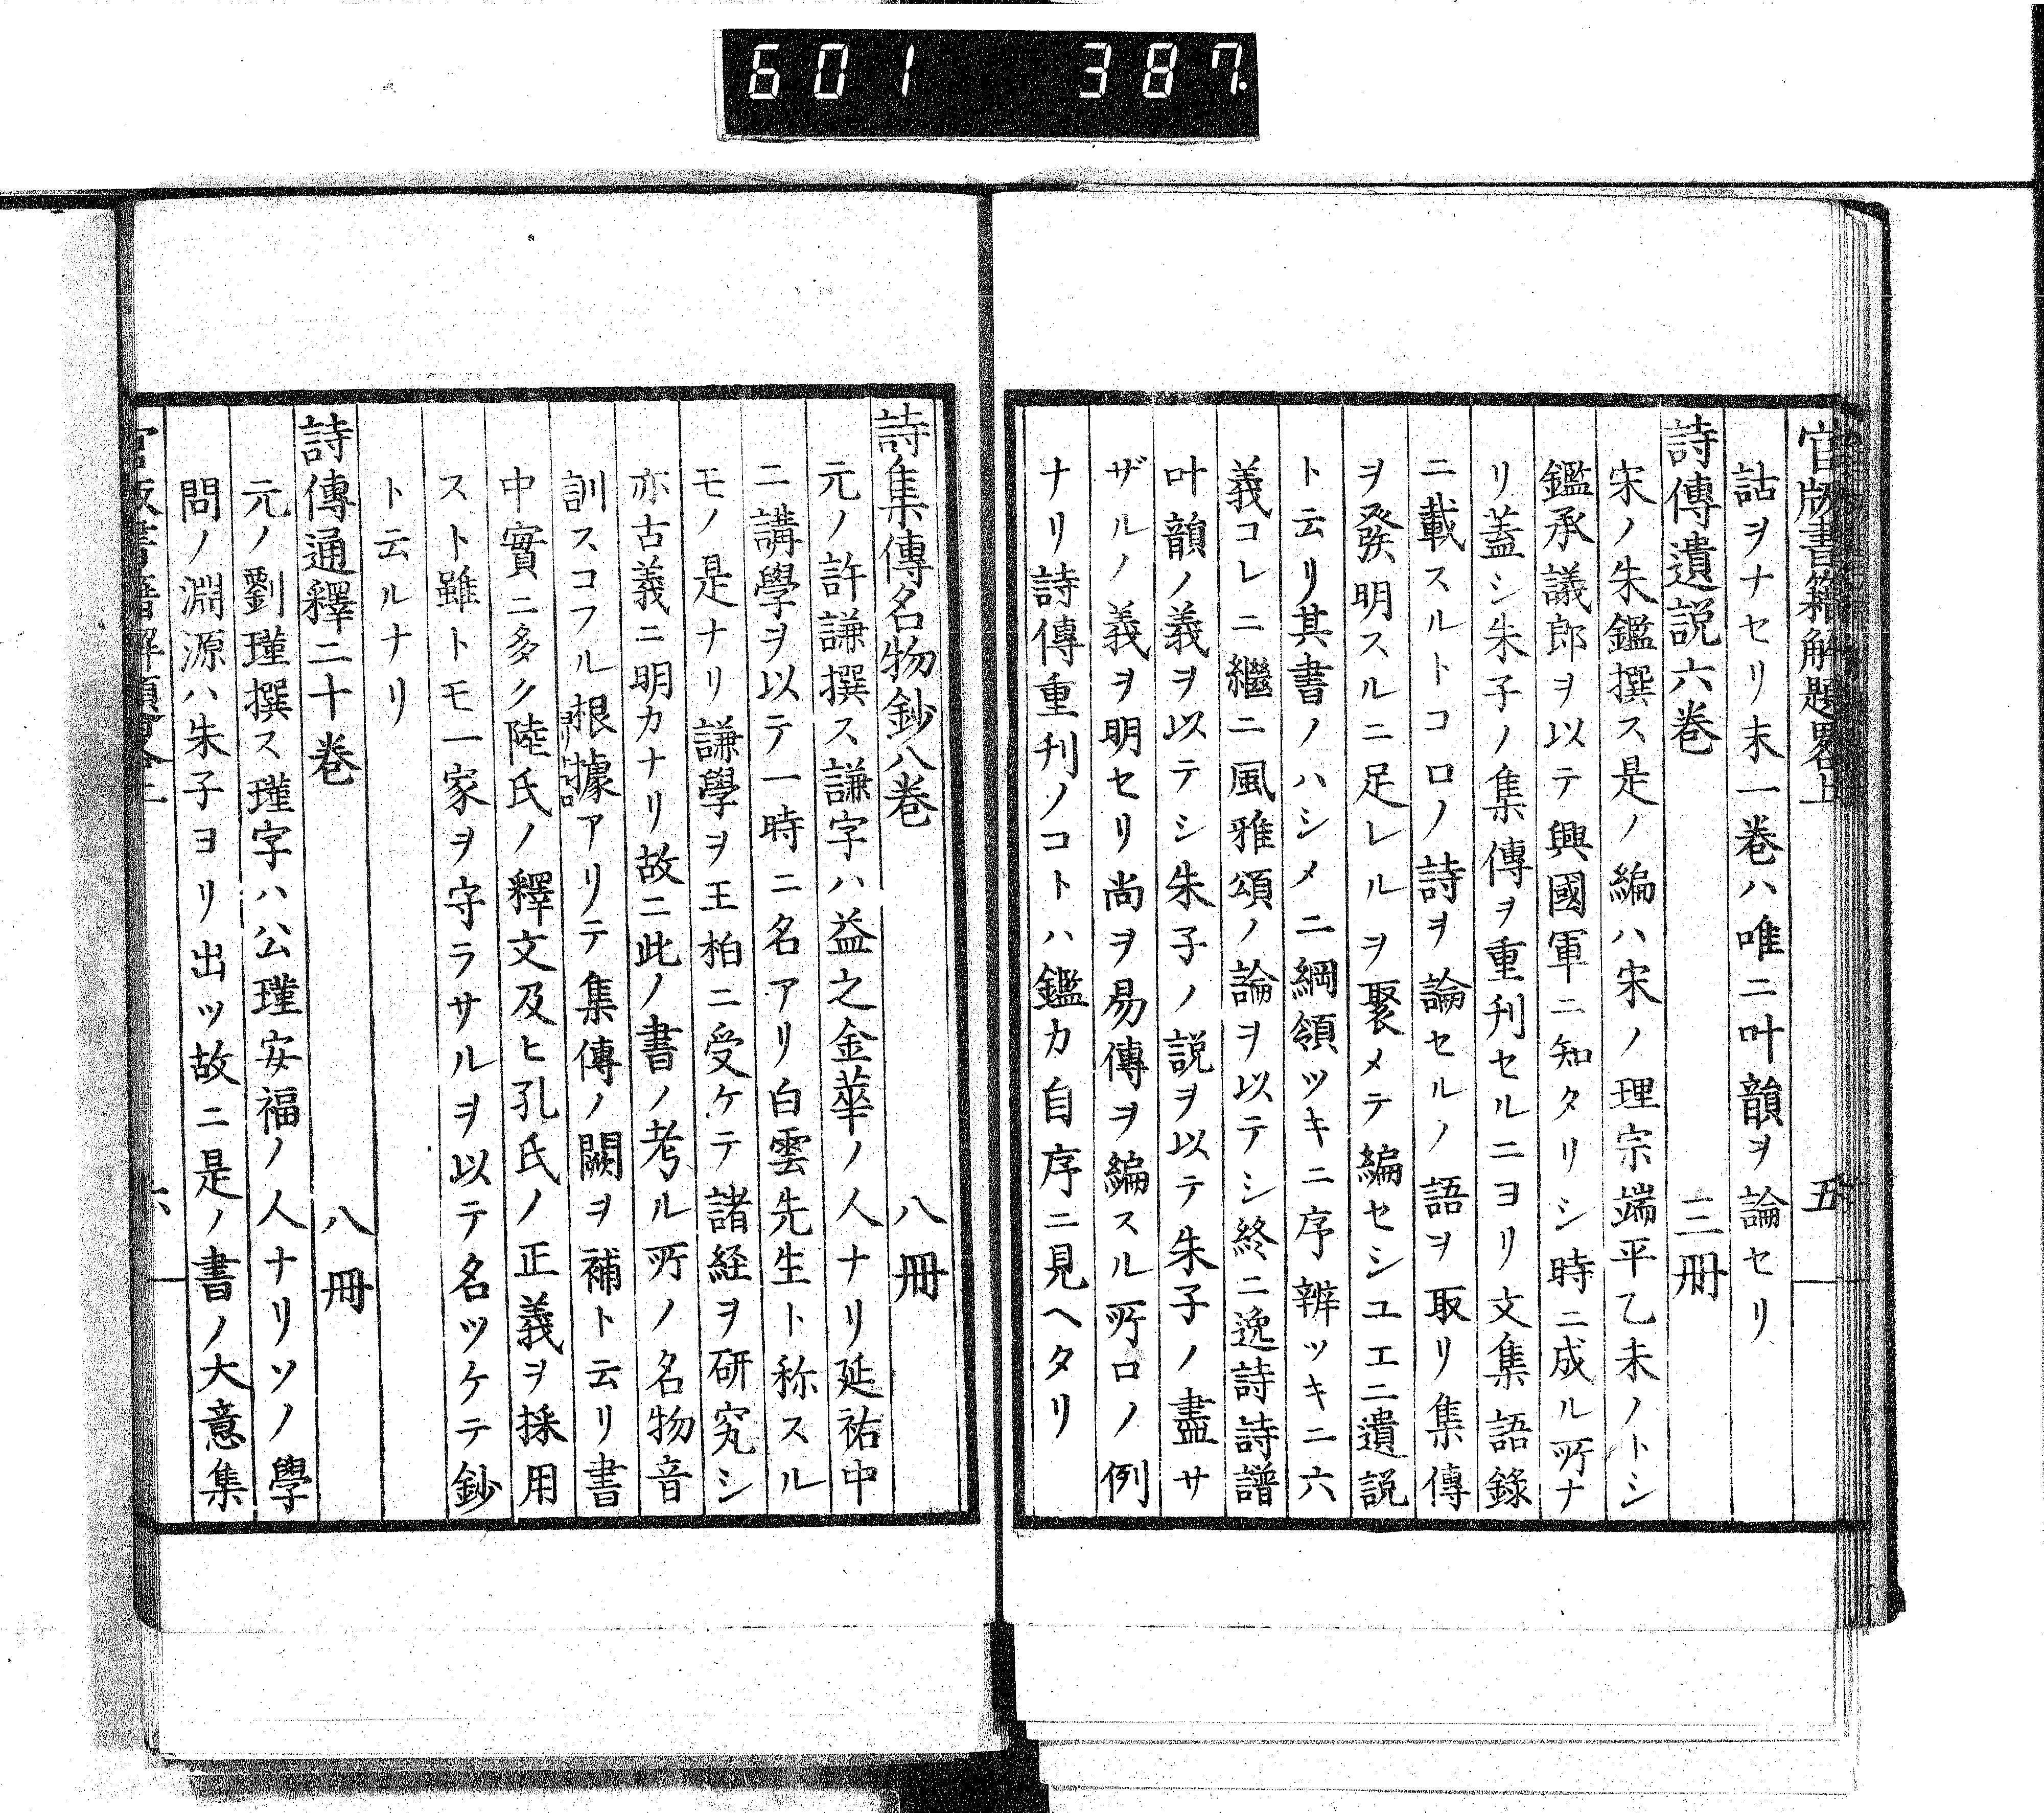 601 387.
官版書籍解題畧上 五
詁ヲナセリ末一巻ハ唯ニ叶韻ヲ論セリ
詩傳遺説六巻 三冊
宋ノ朱鑑撰ス是ノ編ハ宋ノ理宗端平乙未ノトシ
鑑承議郎ヲ以テ興國軍ニ知タリシ時ニ成ル所ナ
リ蓋シ朱子ノ集傳ヲ重刊セルニヨリ文集語錄
ニ載スルトコロノ詩ヲ論セルノ語ヲ取リ集傳
ヲ發明スルニ足レルヲ聚メテ編セシユエニ遺説
ト云リ其書ノハシメニ綱領ツキニ序辨ツキニ六
義コレニ繼ニ風雅頌ノ論ヲ以テシ終ニ逸詩詩譜
叶韻ノ義ヲ以テシ朱子ノ説ヲ以テ朱子ノ盡サ
ザルノ義ヲ明セリ尚ヲ易傳ヲ編スル所ロノ例
ナリ詩傳重刊ノコトハ鑑カ自序ニ見ヘタリ
詩集傳名物鈔八巻 八冊
元ノ許謙撰ス謙字ハ益之金華ノ人ナリ延祐中
ニ講學ヲ以テ一時ニ名アリ白雲先生ト称スル
モノ是ナリ謙學ヲ王柏ニ受ケテ諸経ヲ研究シ
亦古義ニ明カナリ故ニ此ノ書ノ考ル所ノ名物音
訓スコフル根據アリテ集傳ノ闕ヲ補ト云リ書
中實ニ多ク陸氏ノ釋文及ヒ孔氏ノ正義ヲ採用
スト雖トモ一家ヲ守ラサルヲ以テ名ツケテ鈔
ト云ルナリ
詩傳通釋二十巻 八冊
元ノ劉瑾撰ス瑾字ハ公瑾安福ノ人ナリソノ學
問ノ淵源ハ朱子ヨリ出ツ故ニ是ノ書ノ大意集